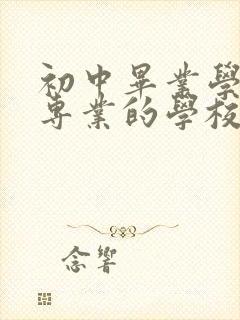 初中畢業學
專業的學校
念響